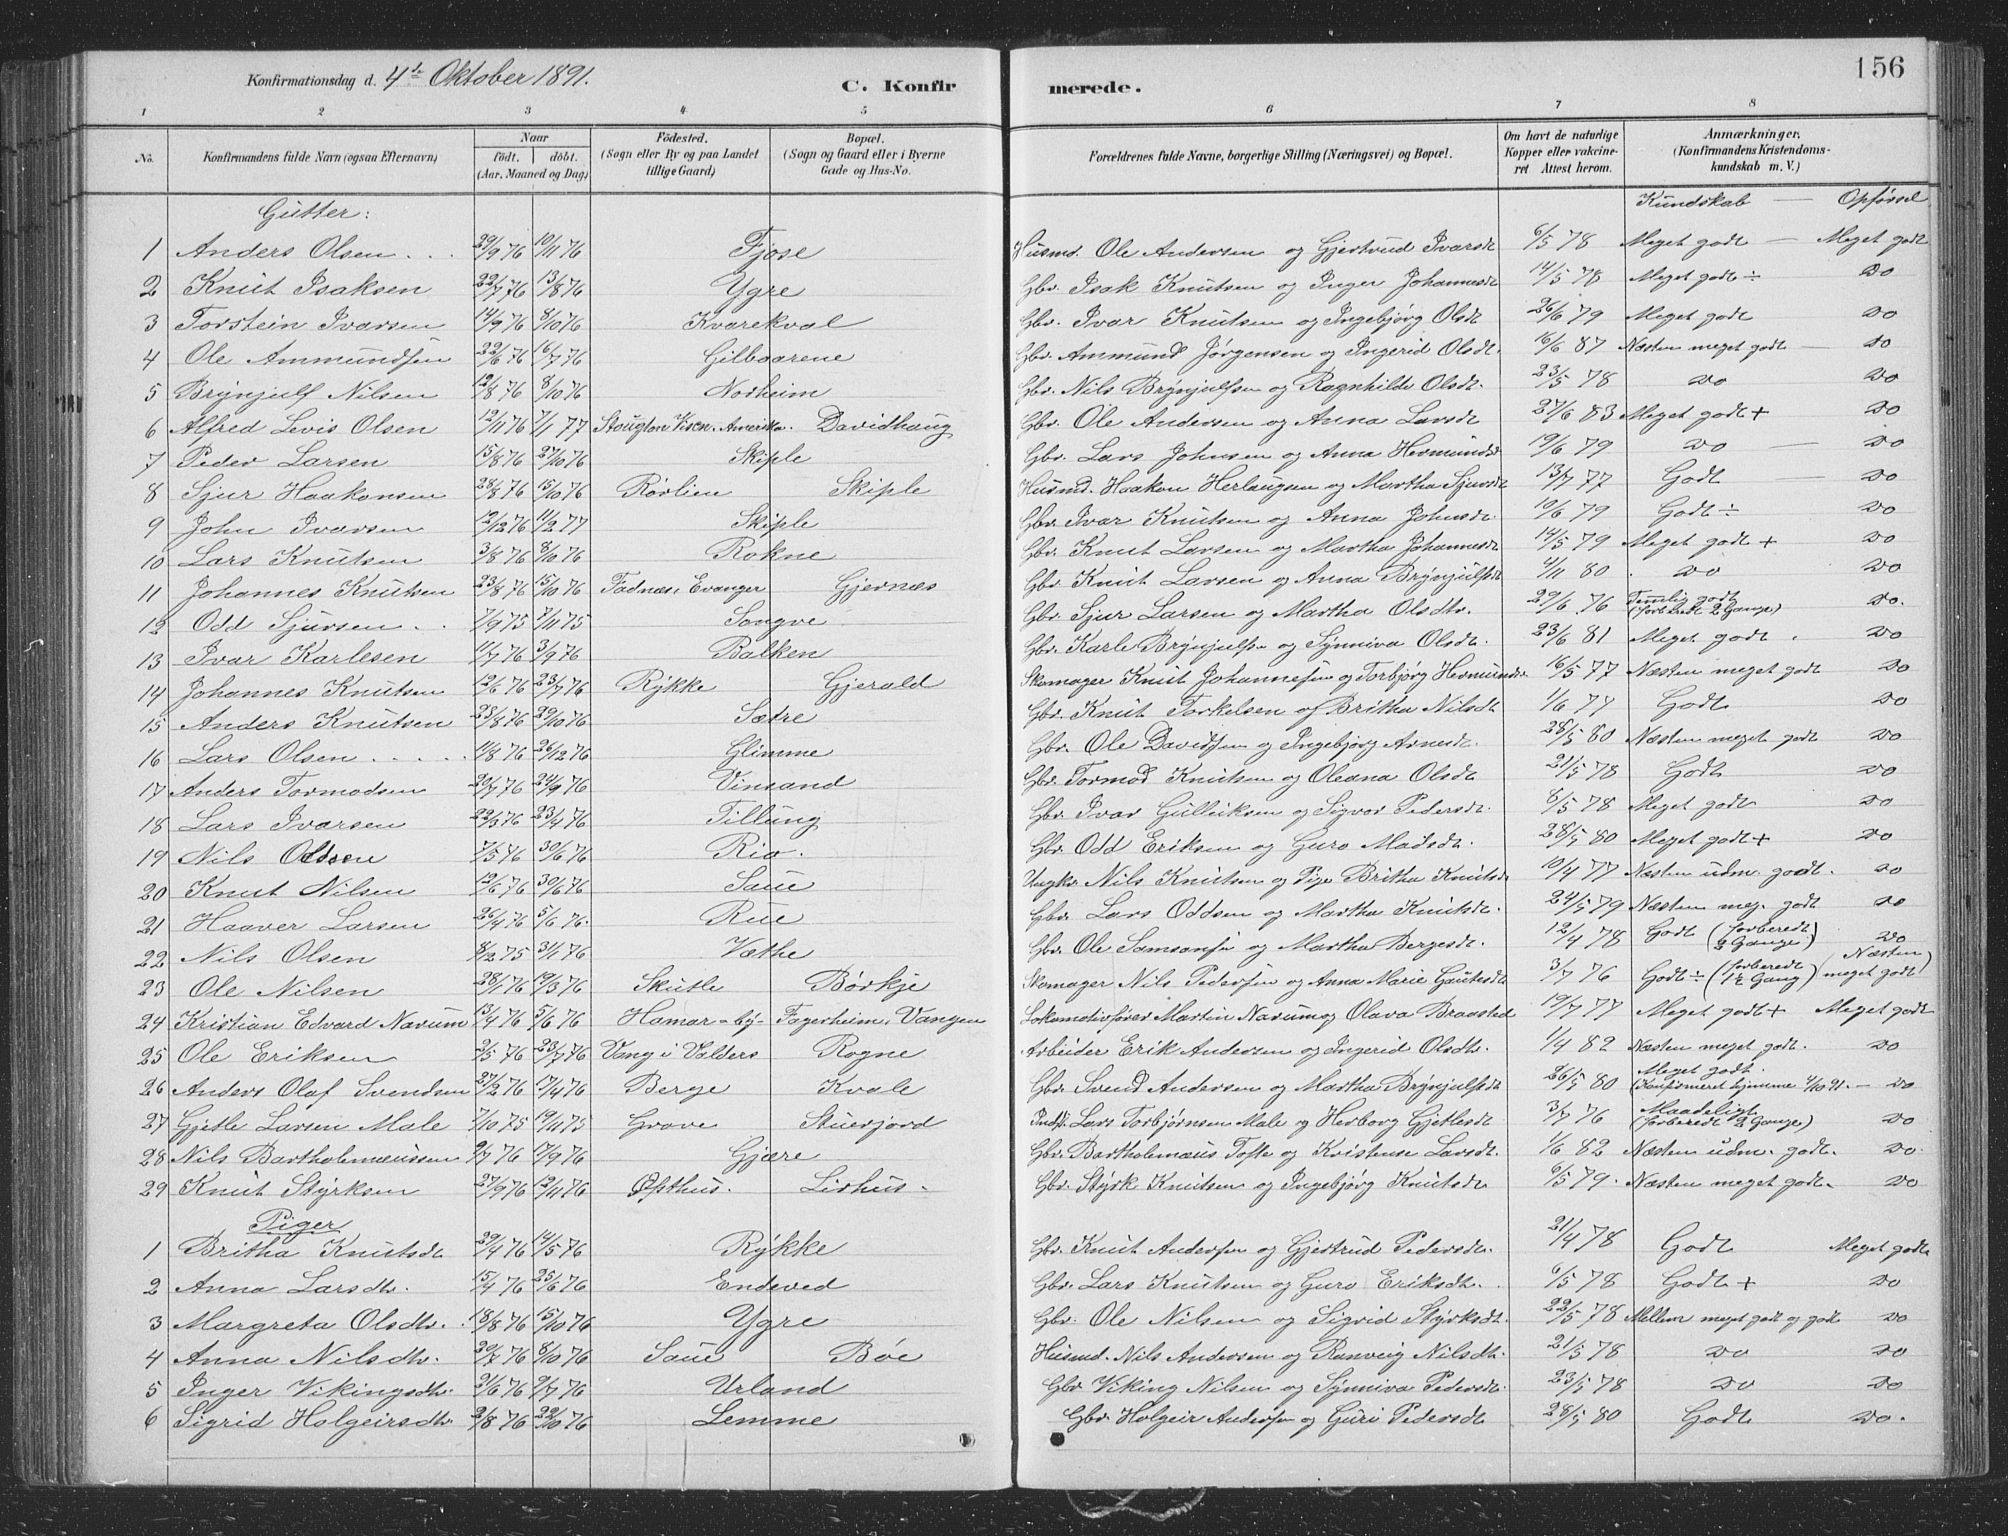 156
Konfirmationsdag d. 4de Oktober 1891. C. Konfirmerede.
1 2 3 4 5 6 7 8
No. Konfirmandens fulde Navn (ogsaa Efternavn) Naar födt. döbt. (Aar, Maaned og Dag) Födested. (Sogn eller By og paa Landet tillige Gaard) Bopæl. (Sogn og Gaard eller i Byerne Gade og Hus-No. Forældrenes fulde Navne, borgerlige Stilling (Næringsvei) og Bopæl. Om havt de naturlige Kopper eller vakcineret Attest herom. Anmærkninger. (Konfirmandens Kristendomskundskab m. V.)
Gutter: Kundskab — Opførsel
1 Anders Olsen 29/9 76 10/11 76 Fjose Husmd. Ole Andersen og Gjertrud Ivarsdt 6/5 78 Meget godt — Meget godt
2 Knut Isaksen 22/7 76 13/8 76 Ygre Gbr. Isak Knutsen og Inger Johannesdt 14/5 78 Meget godt ÷ do
3 Torstein Ivarsen 14/9 76 8/10 76 Kvarekval Gbr. Ivar Knutsen og Ingebjørg Olsdt 26/6 79 Meget godt do
4 Ole Ammundsen 22/6 76 16/7 76 Gilbaarene Gbr. Ammund Jørgensen og Ingerid Olsdt. 16/6 87 Næsten meget godt — do
5 Brynjulf Nilsen 12/8 76 8/10 76 Norheim Gbr. Nils Brynjulfsen og Ragnhilde Olsdt. 23/5 78 do do
6 Alfred Levis Olsen 12/11 76 7/1 77 Stougton Visen. Amerika. Davidhaug Gbr. Ole Andersen og Anna Larsdt 27/6 83 Meget godt + do
7 Peder Larsen 15/8 76 27/10 76 Skiple Gbr. Lars Johnsen og Anna Hermundsd 19/6 79 do — do
8 Sjur Haakonsen 28/8 76 15/10 76 Rørlien Skiple Husmd. Haakon Herlaugsen og Martha Sjursdt 13/7 77 Godt — do
9 John Ivarsen 12/12 76 11/2 77 Skiple Gbr. Ivar Knutsen og Anna Johnsdt. 10/6 79 Godt ÷ do
10 Lars Knutsen 3/8 76 8/10 76 Rokne Gbr. Knut Larsen og Martha Johannesdt 14/5 79 Meget godt + do
11 Johannes Knutsen 23/8 76 15/10 76 Fadnes, Evanger Gjernæs Gbr. Knut Larsen og Anna Brynjulfsdt 4/11 80 do do
12 Odd Sjursen 7/9 75 7/11 75 Songve Gbr. Sjur Larsen og Martha Olsdtr. 29/6 76 Temlig godt (forberedt 2 Gange) do.
13 Ivar Karlesen 11/7 76 3/9 76 Balken Gbr. Karle Brynjulfsen og Synniva Olsdt. 23/6 81 Meget godt. do
14 Johannes Knutsen 12/6 76 23/7 76 Rykke Gjerald Skomager Knut Johannesen og Torbjørg Hermundsdt 16/5 77 Næsten meget godt do
15 Anders Knutsen 23/8 76 29/10 76 Sætre Gbr. Knut Torkelsen og Britha Nilsdt 1/6 77 Godt do
16 Lars Olsen 11/8 76 26/12 76 Glimme Gbr. Ole Davidsen og Ingebjørg Arnesdt. 28/5 80 Næsten meget godt do
17 Anders Tormodsen 20/7 76 24/9 76 Vinsand Gbr. Tormod Knutsen og Oleana Olsdt 21/5 78 Godt do
18 Lars Ivarsen 22/3 76 23/4 76 Tillung Gbr. Ivar Gulleiksen og Sigvor Pedersdt. 8/5 78 Meget godt do
19 Nils Oddsen 7/5 76 30/6 76 Rio. Gbr. Odd Eriksen og Guro Madsdt. 28/5 80 Meget godt + do
20 Knut Nilsen 12/6 76 30/6 76 Saue Ungkr. Nils Knutsen og Pige Britha Knutsdt 10/4 77 Næsten udm. godt. do
21 Haaver Larsen 26/4 76 5/6 76. Rue Gbr. Lars Oddsen og Martha Knutsdt. 24/5 79 Næsten meg. godt do
22 Nils Olsen 8/2 75 31/1 76 Væthe Gbr. Ole Samsonsen og Martha Bergesdt. 12/4 78 Godt (forberedt 2 Gange) do
23 Ole Nilsen 28/1 76 19/3 76 Skutle Børkje Skomager Nils Pedersen og Anna Marie Gautesdt 3/7 76 Godt ÷ (forberedt 1½ Gang) (Næsten meget godt)
24 Kristian Edvard Narum 13/4 76 5/6 76 Hamar-by- Fagerheim, Vangen Lokomotivfører Martin Narum og Olava Braastad 19/7 77 Meget godt + Meget godt
25 Ole Eriksen 2/5 76 23/7 76 Vang i Valders Rogne Arbeider Erik Andersen og Ingerid Olsdtr. 1/4 82 Næsten meget godt. do
26 Anders Olaf Svendsen 27/2 76 17/4 76 Berge Kvale Gbr. Svend Andersen og Martha Brynjulfsdt 26/5 80 Meget godt. (Konfirmeret hjemme 4/10 91. — do
27 Gjetle Larsen Male 7/10 75 19/11 75 Grove Stuerjord Inds. Lars Torbjørnsen Male og Herborg Gjetlesdt 3/7 76 Maadeligt (forberedt 2 Gange) do
28 Nils Bartholemæussen 9/7 76 17/9 76 Gjære Gbr. Bartholemæus Tofte og Kristense Larsdt. 1/6 82 Næsten udm. godt. do.
29 Knut Styrksen 27/9 76 12/11 76 Østhus. Lirhus. Gbr. Styrk Knutsen og Ingebjørg Knutsdt 9/5 79. Næsten meget godt. do
Piger
1 Britha Knutsdt 29/4 76 14/5 76 Rykke Gbr. Knut Andersen og Gjertrud Pedersdt. 21/4 78 Godt Meget godt
2 Anna Larsdtr. 15/4 76 25/6 76 Endeved Gbr. Lars Knutsen og Guro Eriksdt. 6/5 78 Godt + do
3 Margreta Olsdtr. 18/8 76 15/10 76 Ygre Gbr. Ole Nilsen og Sigrid Styrksdt. 22/5 78 Mellem meget godt og godt do
4 Anna Nilsdtr. 20/7 76 8/10 76 Saue Bøe Husmd. Nils Andersen og Ranveig Nilsdt. 21/5 78 do do
5 Inger Vikingsdtr. 21/6 76 9/7 76 Urland Gbr. Viking Nilsen og Synniva Pedersdt. 23/5 78 do do
6 Sigrid Holgeirsdtr. 2/8 76 22/10 76 Lemme Gbr. Holgeir Andersen og Guri Pedersdt 28/5 80 Godt do.